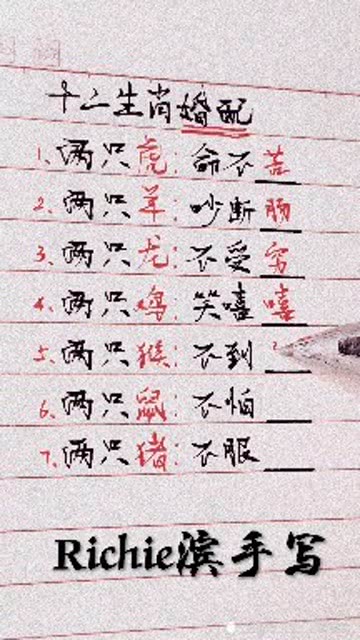 十二生肖婚配
1、两只虎：命不苦
2、两只羊：吵断肠
3、两只龙：不受穷
4、两只鸡：笑嘻嘻
5、两只猴：不到
6、两只鼠：不怕
7、两只猪：不服
Richie滨手写